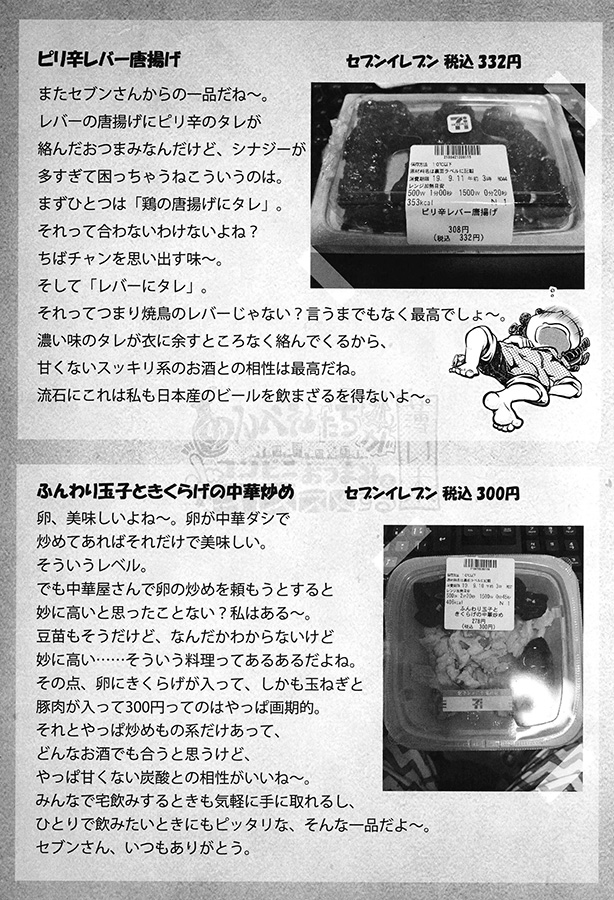 ピリ辛レバー唐揚げ
セブンイレブン 税込 332円
またセブンさんからの一品だね〜。
レバーの唐揚げにピリ辛のタレが
絡んだおつまみなんだけど、シナジーが
多すぎて困っちゃうねこういうのは。
まずひとつは「鶏の唐揚げにタレ」。
それって合わないわけないよね？
ちばチャンを思い出す味〜。
そして「レバーにタレ」。
それってつまり焼鳥のレバーじゃない？言うまでもなく最高でしょ〜。
濃い味のタレが衣に余すところなく絡んでくるから、
甘くないスッキリ系のお酒との相性は最高だね。
流石にこれは私も日本産のビールを飲まざるを得ないよ〜。
保存方法 10℃以下
消費期限 19. 9.11 午前 3時
レンジ加熱目安
500W 1分00秒 1500W 0分20秒
353kcal N 1
ピリ辛レバー唐揚げ
308円
(税込 332円)
ふんわり玉子ときくらげの中華炒め
セブンイレブン 税込 300円
卵、美味しいよね〜。卵が中華ダシで
炒めてあればそれだけで美味しい。
そういうレベル。
でも中華屋さんで卵の炒めを頼もうとすると
妙に高いと思ったことない？私はある〜。
豆苗もそうだけど、なんだかわからないけど
妙に高い……そういう料理ってあるあるだよね。
その点、卵にきくらげが入って、しかも玉ねぎと
豚肉が入って300円ってのはやっぱ画期的。
それとやっぱ炒めもの系だけあって、
どんなお酒でも合うと思うけど、
やっぱ甘くない炭酸との相性がいいね〜。
みんなで宅飲みするときも気軽に手に取れるし、
ひとりで飲みたいときにもピッタリな、そんな一品だよ〜。
セブンさん、いつもありがとう。
ふんわり玉子と
きくらげの中華炒め
278円
(税込 300円)